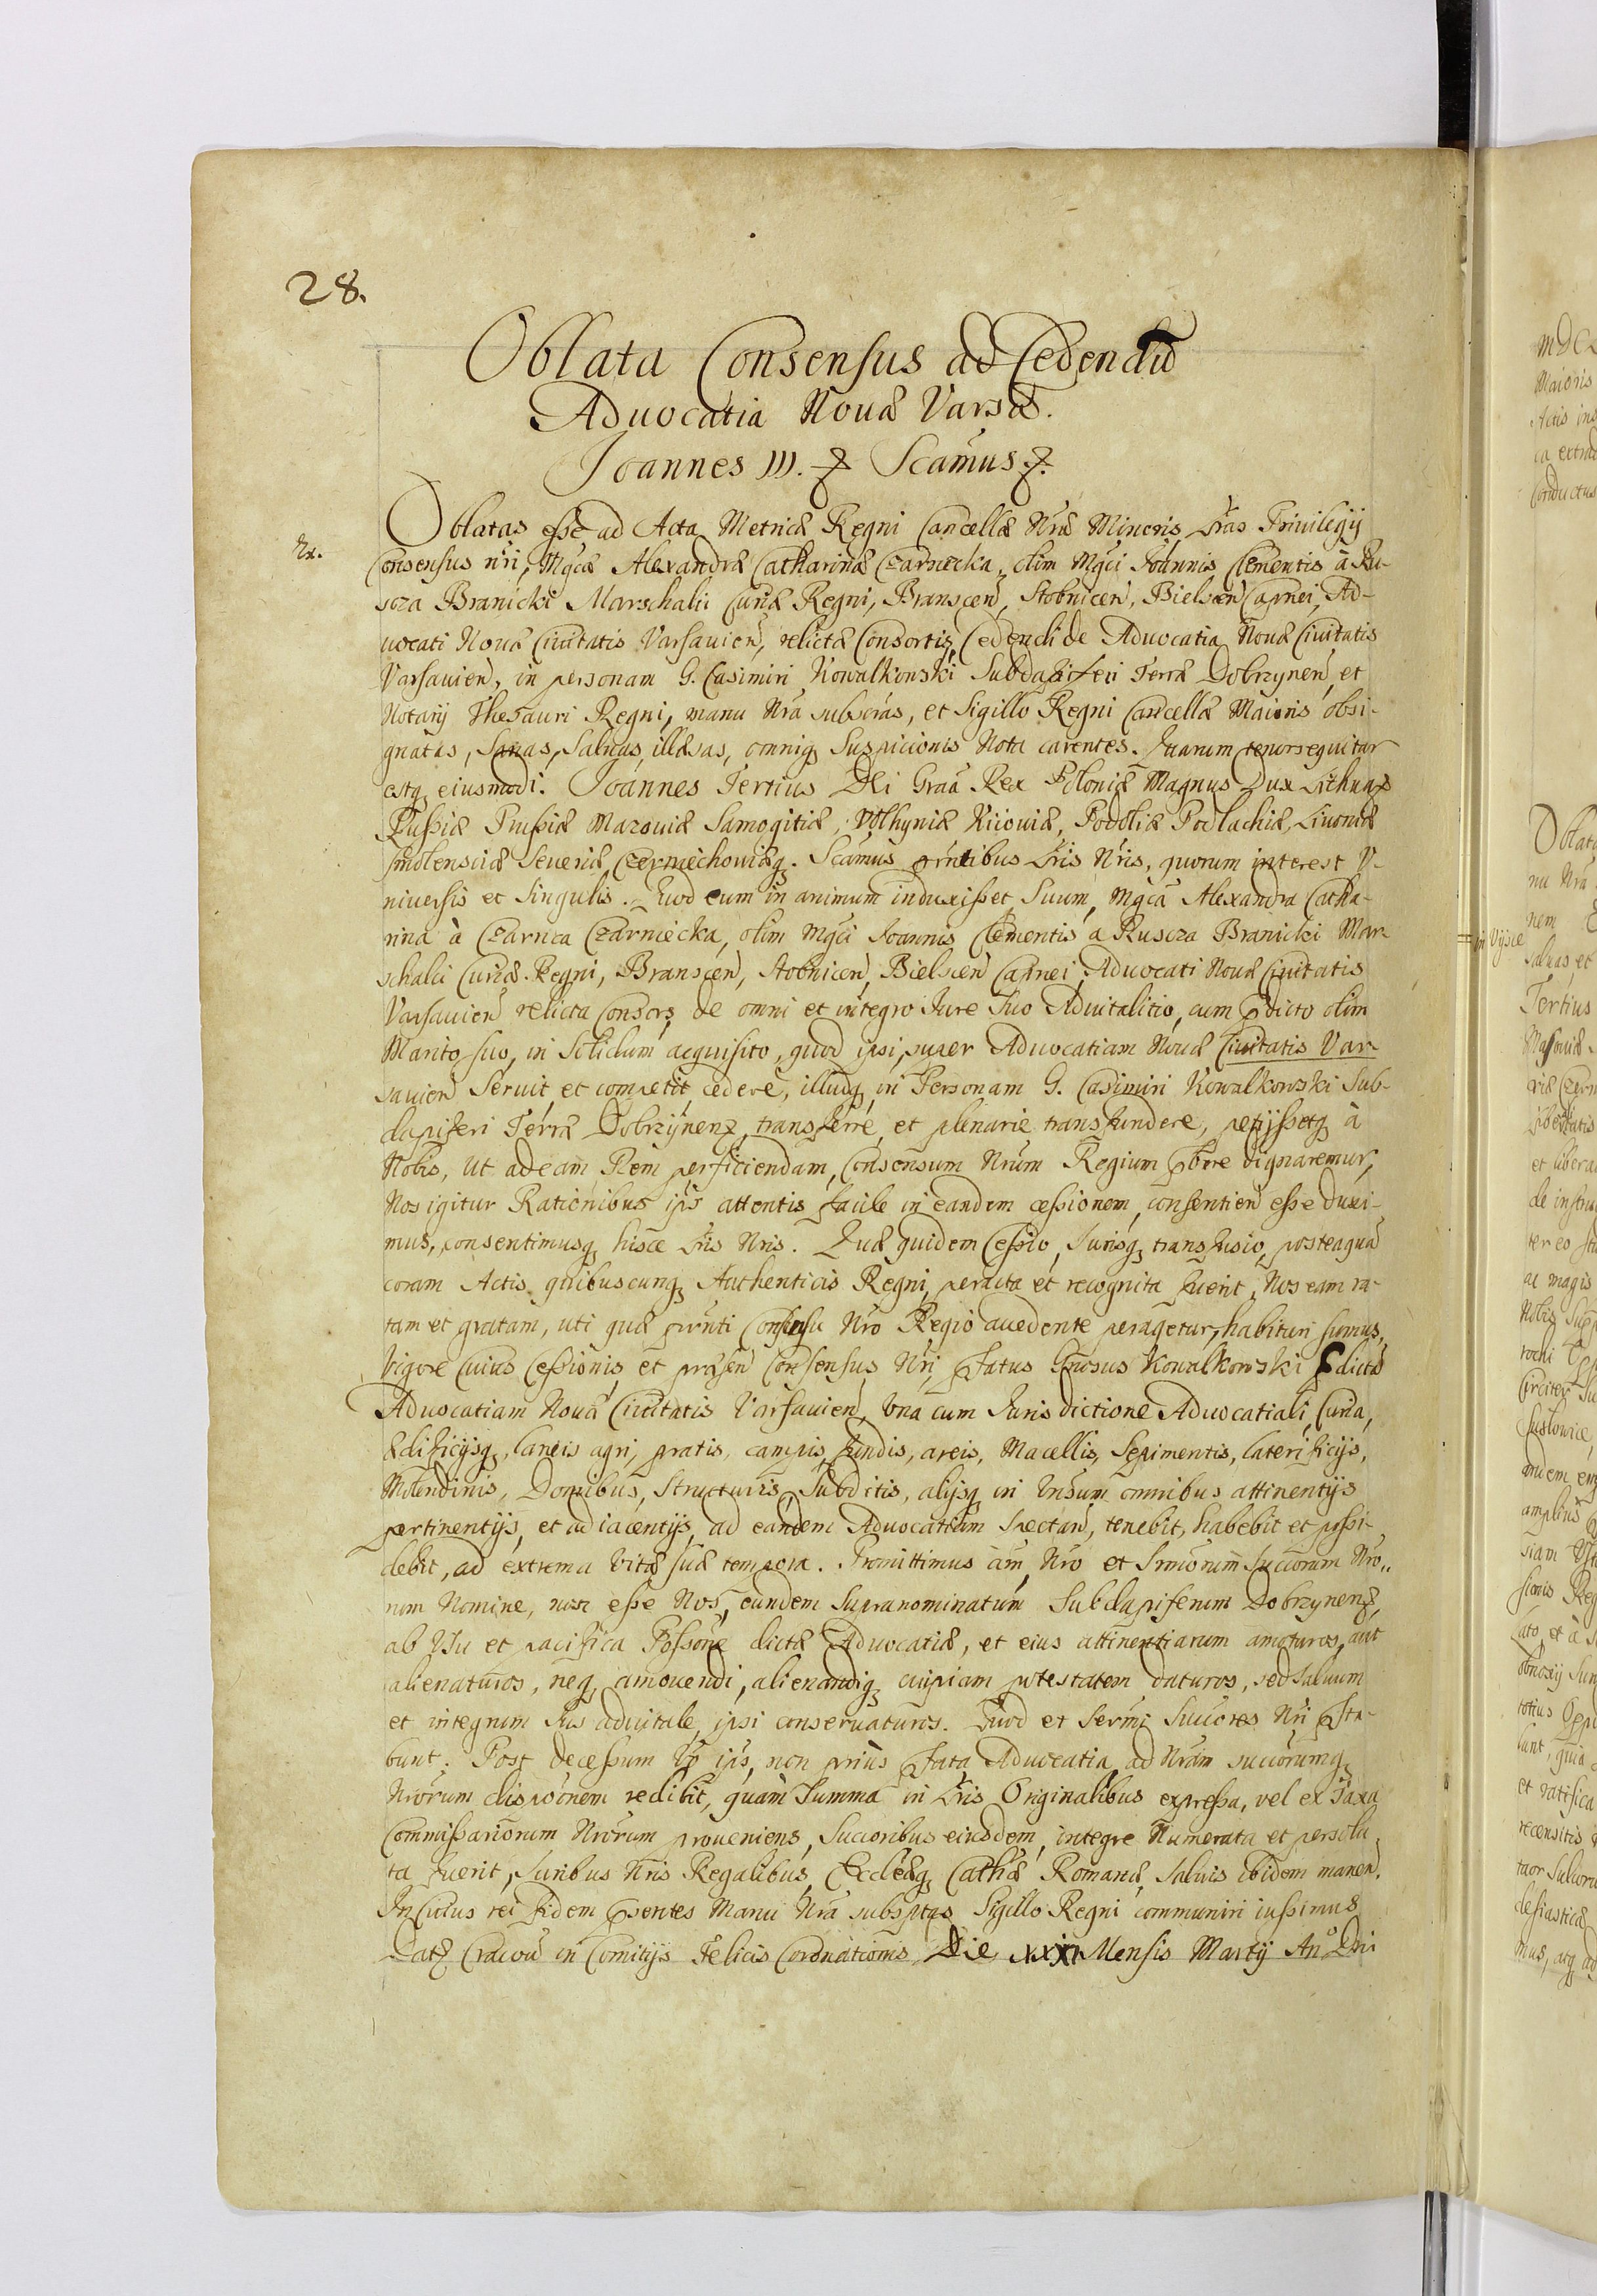 28.
Oblata Consensus ad Cedendū
Aduocatia Nouæ Varsæ.
Joannes III. Scāmus
Oblatas esse ad Acta Metricæ Regni Cancellæ Nræ Minoris Lras Priuilegij
Consensus nri, Mgcæ Alexandræ Catharinæ Czarnecka, olim Mgci Joannis Clementis à Ru-
scza Branicki Marschalii Curiæ Regni, Branscen, Stobnicen, Bielscen Capnei, Ad-
uocati Nouæ Ciuitatis Varsauien, relictæ Consortis, Cedendi de Aduocatia Nouæ Ciuitatis
Varsauien, in personam G. Casimiri Kowalkowski Subdapiferi Terræ Dobrzynen, et
Notarij Thesauri Regni, manu Nra subscras, et Sigillo Regni Cancellæ Maioris obsi-
gnatas, Sanas, Saluas, illæsas, omniq Suspicionis Nota carentes. Quarum tenor sequitur
estq eiusmodi. Joannes Tertius Dei Graa Rex Poloniæ Magnus Dux Lithuaæ
Russiæ Prussiæ Mazouiæ Samogitiæ, Volhyniæ Kiiouiæ, Podoliæ Podlachiæ, Liuoniæ
Smolensciæ Seueriæ Czerniechouiæq. Scamus prntibus Lris Nris, quorum interest V-
niuersis et Singulis. Quod cum in animum induxisset Suum, Mgca Alexandra Catha-
rina à Czarnca Czarniecka, olim Mgci Joannis Clementis a Ruscza Branicki Mar-
schalci Curiæ Regni, Branscen, Stobnicen, Bielscen Capnei, Aduocati Nouæ Ciuitatis
Varsauien relicta Consors de omni et integro Jure Suo Aduitalitio, cum pdicto olim
Marito suo, in Solidum acquisito, quod ipsi super Aduocatiam Nouæ Ciuitatis Var-
sauien Seruit et competit cedere, illudq in Personam G. Casimiri Kowalkowski Sub-
dapiferi Terræ Dobrzynen, transferre, et plenarie transfundere, petijssetq à
Nobis, ut ad eam Rem perficiendam, Consensum Nrum Regium pbere dignaremur,
Nos igitur Rationibus ips attentis facile in eandem cessionem, consentien esse duxi-
mus, consentimusq hisce Lris Nris. Quæ quidem Cessio, Jurisq transfusio, posteaquā
coram Actis quibuscunq Authenticis Regni, peracta et recognita fuerit, Nos eam ra-
tam et gratam, uti quæ prnti Consensu Nro Regio accedente peragetur, habituri sumus,
Vigore Cuius Cessionis et præsen Consensus Nri, pfatus Gnosus Kowalkowski pdictā
Aduocatiam Nouæ Ciuitatis Varsauien, Vna cum Jurisdictione Aduocatiali, Curia,
ædificijsq, laneis agri, pratis, campis, fundis, areis, Macellis, Sepimentis, laterificijs,
Molendinis, Domibus, Structuris, Subditis, alijsq in Vnsum omnibus attinentijs
pertinentijs, et adiacentijs, ad eandem Aduocatiam Spectan, tenebit, habebit et possi-
debit, ad extrema Vitæ suæ tempora. Promittimus am, Nro et Srmorum Succorum Nro-
rum Nomine, non esse Nos, eundem Supranominatum Subdapiferum Dobrzynen,
ab Vsu et pacifica Possone dictæ Aduocatiæ, et eius attinentiarum amoturos, aut
alienaturos, neq amouendi, alienandiq cuipiam potestatem daturos, sed Saluum
et integrum Jus aduitale ipsi conseruaturos. Quod et Sermi Succores Nri psta-
bunt. Post decessum vo ips, non prius pfata Aduocatia ad Nram succorumq
Nrorum dispoonem redibit, quàm Summa in Lris Originalibus expressa, vel ex Taxa
Commissariorum Nrorum proueniens, Succoribus eiusdem, integre Numerata et persolu-
ta fuerit, Juribus Nris Regalibus, Eccleæq Cathæ Romanæ, Saluis ibidem manen.
In Cuius rei fidem psentes Manu Nra subsptas Sigillo Regni communiri iussimus
Dat Crauou in Comitijs Felicis Coronationis, Die xxx Mensis Martij Ano Dni